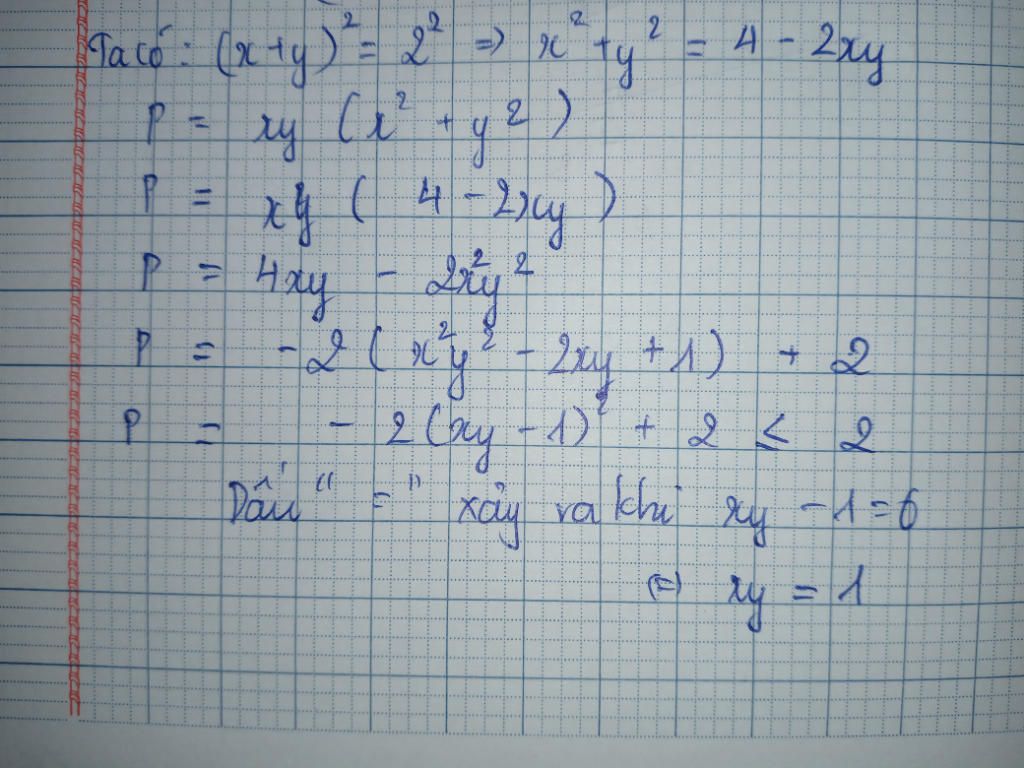 Ta có: (x+y)² = 2² => x² + y² = 4 - 2xy
P = xy (x² + y²)
P = xy ( 4 - 2xy )
P = 4xy - 2x²y²
P = - 2 ( x²y² - 2xy + 1 ) + 2
P = - 2 (xy - 1)² + 2 ≤ 2
Dấu " = " xảy ra khi xy - 1 = 0
(=) xy = 1